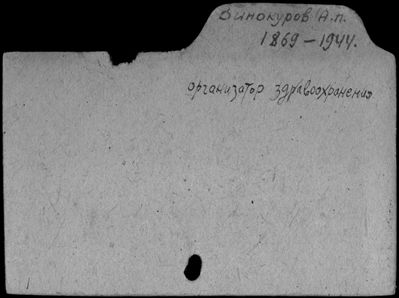 Винокуров А.п.
1869-1944.
организатор здравоохранения